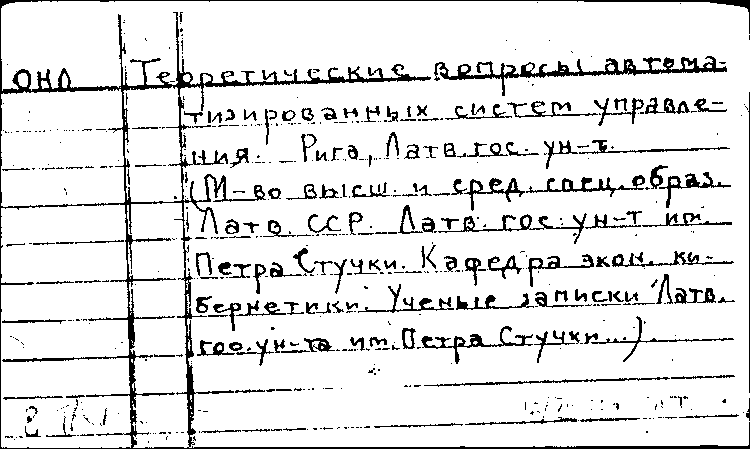 ОНЛ Теоретические вопросы автома-
тизированных систем управле-
ния. Рига, Латв. гос. ун-т.
(М-во высш. и сред. спец. образ.
Латв. ССР. Латв. гос. ун-т им.
Петра Стучки. Кафедра экон. ки-
бернетики. Ученые записки Латв.
гос. ун-та им. Петра Стучки...).